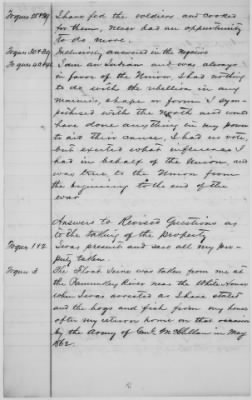 To ques 25 & 29 I have fed the soldiers and cooked
for them, never had an opportunity
to do more.
To ques 30 & 39 Negatively answered in the negative
To ques 40 & 41 I am an Indian and was always
in favor of the Union I had nothing
to do with the rebellion in any
manner, shape or form I sym-
pathised with the North and would
have done everything in my power
to aid their cause, I had no vote,
but exerted what influence I
had in behalf of the Union, and
was true to the Union from
the beginning to the end of the
war
Answers to Revised Questions as
to the taking of the property
To ques 1 & 2 I was present and saw all my pro-
perty taken.
To ques 3 The Float Seine was taken from me at
the Pamunkey River near the White House
when I was arrested as I have stated
and the hogs and fish from my house
after my return home on that occasion
by the Army of Genl McClellan in May
1862.